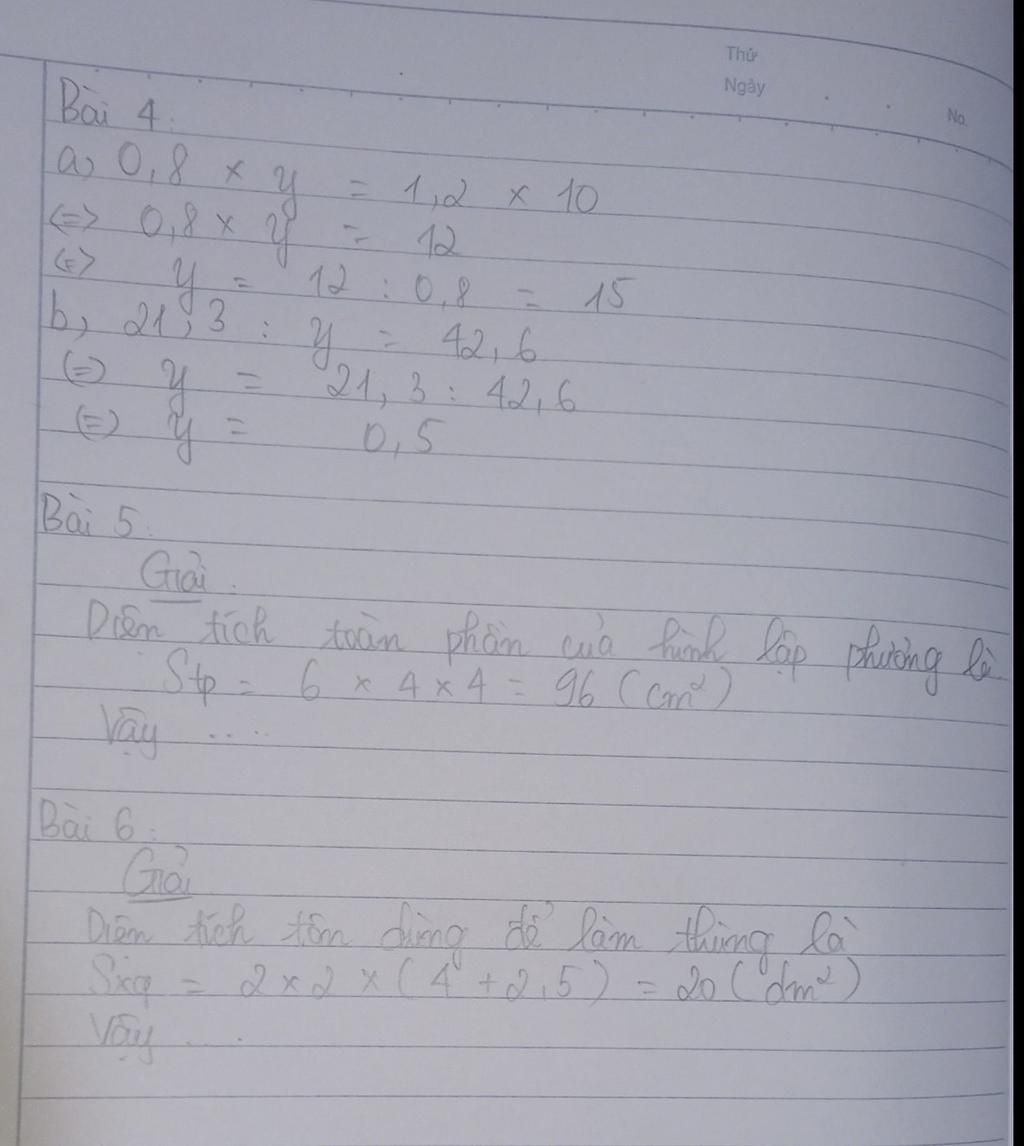 Thứ
Ngày
No.
Bài 4:
a, 0,8 × y = 1,2 × 10
<=> 0,8 × y = 12
<=> y = 12 : 0,8 = 15
b, 21,3 : y = 42,6
<=> y = 21,3 : 42,6
<=> y = 0,5
Bài 5:
Giải.
Diện tích toàn phần của hình lập phương là
Stp = 6 × 4 × 4 = 96 (cm²)
Vậy ....
Bài 6:
Giải
Diện tích tôn dùng để làm thùng là
Sxq = 2 × 2 × (4 + 2,5) = 20 (dm²)
Vậy ....